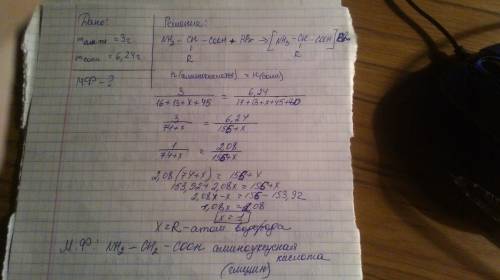 Дано:
m ам.к. = 3г
m соли = 6,24г.
МФ - ?
Решение:
NH₂ - CH - COOH + HBr → [NH₃ - CH - COOH]Br
R R
n(аминокислоты) = n(соли)
3/(16+13+x+45) = 6,24/(17+13+x+45+80)
3/(74+x) = 6,24/(155+x)
1/(74+x) = 2,08/(155+x)
2,08(74+x) = 155+x
153,92+2,08x = 155+x
2,08x-x = 155-153,92
1,08x = 1,08
x = 1
X = R - атом водорода
М.Ф. NH₂ - CH₂ - COOH аминоуксусная
кислота
(глицин)